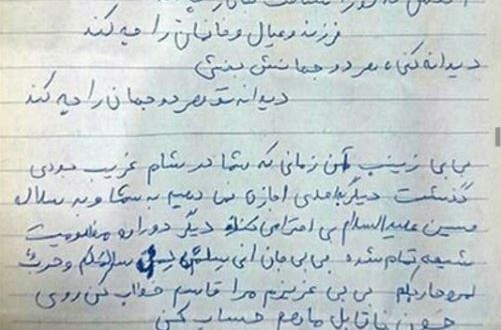 فرزند و عیال و خانمان را چه کند
دیوانه کنی هر دو جهانش بخشی
دیوانه تو هر دو جهان را چه کند
بی بی زینب آن زمانی که شما در شام غریب بودی
گذشت دیگر به احدی اجازه نمی دهیم به شما و به سلاله
حسین علیه السلام بی احترامی کند دیگر دوران مظلومیت
شیعه تمام شده بی بی جان انی سلم لمن سالمکم و حرب
لمن حاربکم بی بی عزیزم مرا قاسم خطاب کن روی
خون ناقابل ما هم حساب کن